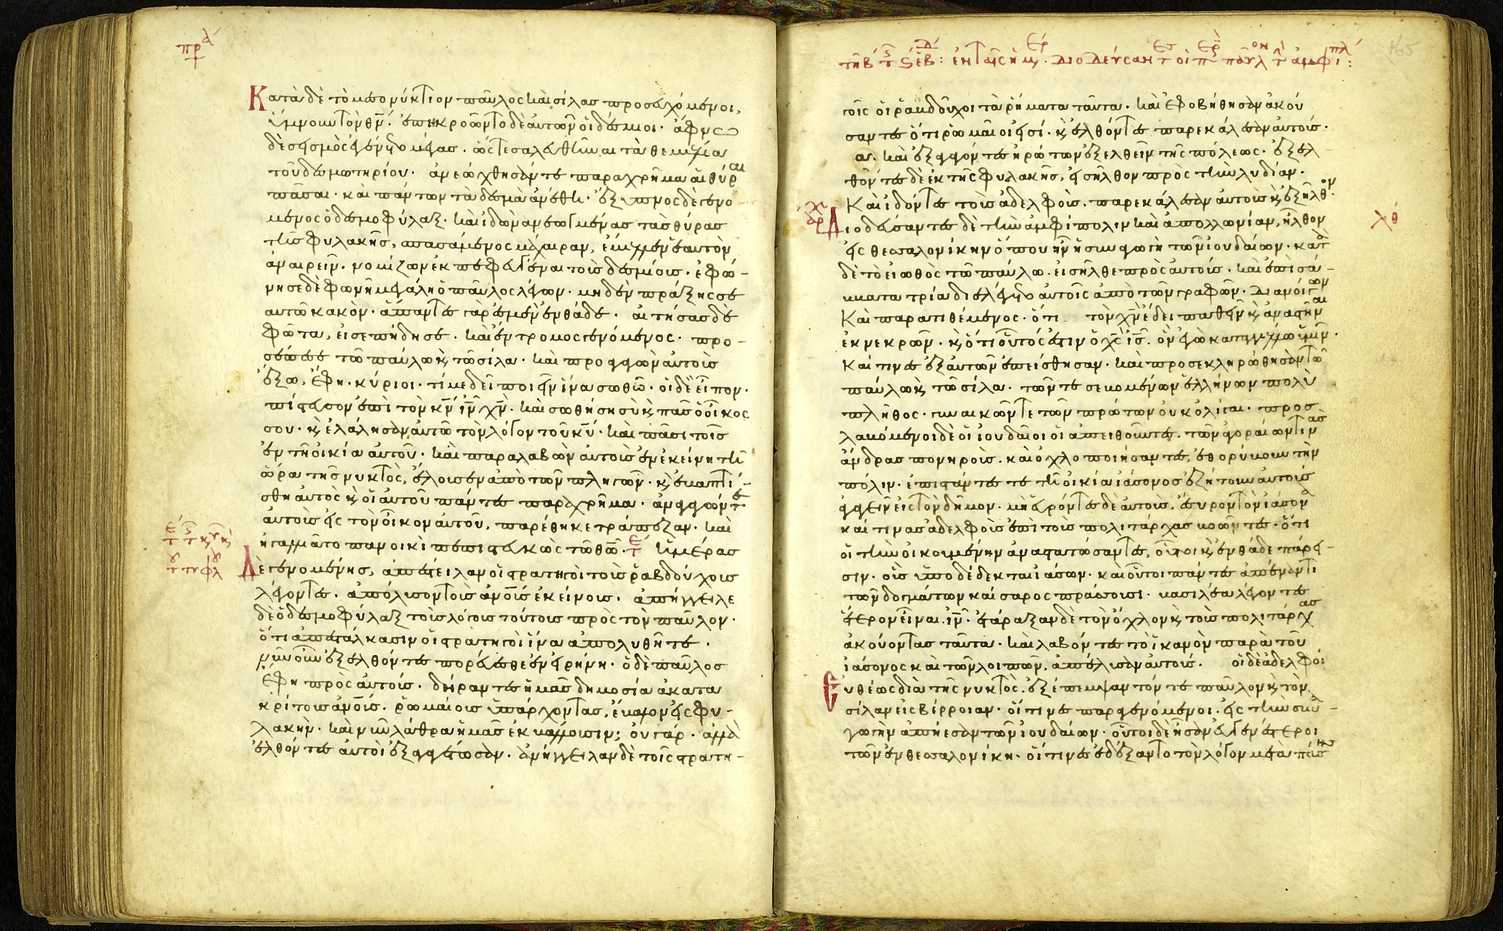 πρα
Κατὰ δὲ τὸ μεσονύκτιον παῦλος καὶ σίλας προσευχόμενοι,
ὕμνουν τὸν θν̄· ἐπηκροῶντο δὲ αὐτῶν οἱ δέσμιοι· ἄφνω
δὲ σεισμὸς ἐγένετο μέγας· ὥστε σαλευθῆναι τὰ θεμέλια
τοῦ δεσμωτηρίου· ἀνεώχθησάν τε παραχρῆμα αἱ θύραι
πᾶσαι· καὶ πάντων τὰ δεσμὰ ἀνέθη· ἔξυπνος δὲ γενό
μενος ὁ δεσμοφύλαξ· καὶ ἰδὼν ἀνεωγμένας τὰς θύρας
τῆς φυλακῆς, σπασάμενος μάχαιραν, ἔμελλεν ἑαυτὸν
ἀναιρεῖν· νομίζων ἐκπεφευγέναι τοὺς δεσμίους· ἐφώ-
νησε δὲ φωνῆ μεγάλη ὁ παῦλος λέγων· μηδὲν πράξης σε
αυτῶ κακόν· ἅπαντες γάρ ἐσμεν ἐνθάδε· αἰτήσας δὲ
φῶτα, εἰσεπήδησε· καὶ ἔντρομος γενόμενος· προ-
σέπεσε τῶ παύλω κ̀ τῶ σίλα· καὶ προαγαγὼν αὐτοὺς
ἔξω, ἔφη· κύριοι· τί με δεῖ ποιεῖν ἵνα σωθῶ· οἱ δὲ εἶπον·
πίστευσον ἐπὶ τὸν κν̄ ιν̄ χν̄· καὶ σωθήση σὺ κ̀ πᾶς ὁ οἶκός
σου· κ̀ ἐλάλησαν αὐτῶ τὸν λόγον τοῦ κῡ· καὶ πᾶσι τοῖς
ἐν τῆ οἰκία αὐτοῦ· καὶ παραλαβὼν αὐτοὺς ἐν ἐκείνη τῆ
ὥρα τῆς νυκτὸς, ἔλουσεν ἀπὸ τῶν πληγῶν· κ̀ ἐβαπτί-
σθη αὐτὸς κ̀ οἱ αὐτοῦ πάντες παραχρῆμα· ἀναγαγών τε
αὐτοὺς εἰς τὸν οἶκον αὐτοῦ, παρέθηκε τράπεζαν· καὶ
ἠγαλλιᾶτο πανοικὶ πεπιστευκὼς τῶ θῶ· ἡμέρας
Δὲ γενομένης, ἀπέστειλαν οἱ στρατηγοὶ τοὺς ῥαβδούχους
λέγοντες· ἀπόλυσον τοὺς ἀνο̄υς ἐκείνους· ἀπήγγειλε
δὲ ὁ δεσμοφύλαξ τοὺς λόγους τούτους πρὸς τὸν παῦλον·
ὅτι ἀπεστάλκασιν οἱ στρατηγοὶ ἵνα ἀπολυθῆτε·
νῦν οὖν ἐξελθόντες πορεύεσθε ἐν εἰρήνη· ὁ δὲ παῦλος
ἔφη πρὸς αὐτούς· δείραντες ἡμᾶς δημοσία ἀκατα
κρίτους ἀνο̄υς· ῥωμαίους ὑπάρχοντας, ἔβαλον εἰς φυ-
λακήν· καὶ νῦν λάθρα ἡμᾶς ἐκβάλλουσιν; οὐ γάρ· ἀλλὰ
ἐλθόντες αὐτοὶ ἐξαγαγέτωσαν· ἀνήγγειλαν δὲ τοῖς στρατη-
γοῖς οἱ ῥαβδοῦχοι τὰ ῥήματα ταῦτα· καὶ ἐφοβήθησαν ἀκού
σαντες ὅτι ῥωμαῖοι εἰσί· κ̀ ἐλθόντες παρεκάλεσαν αὐτούς·
καὶ ἐξαγαγόντες ἠρώτων ἐξελθεῖν τῆς πόλεως· ἐξελ-
θόντες δὲ ἐκ τῆς φυλακῆς, εἰσῆλθον πρὸς τὴν λυδίαν·
Καὶ ἰδόντες τοὺς ἀδελφοὺς· παρεκάλεσαν αὐτοὺς κ̀ ἐξῆλθον
Διοδεύσαντες δὲ τὴν ἀμφίπολιν καὶ ἀπολλωνίαν, ἦλθον
εἰς θεσσαλονίκην ὅπου ἦν ἡ συναγωγὴ τῶν ἰουδαίων· κατὰ
δὲ τὸ εἰωθὸς τῶ παύλω· εἰσῆλθε πρὸς αὐτούς· καὶ ἐπὶ σά-
ββατα τρία διελέγετο αὐτοῖς ἀπὸ τῶν γραφῶν· διανοίγων
Καὶ παρατιθέμενος· ὅτι τὸν χν̄ ἔδει παθεῖν κ̀ ἀναστῆναι
ἐκ νεκρῶν· κ̀ ὅτι οὗτός ἐστιν ὁ χς̄ ις̄· ὃν ἐγὼ καταγγέλλω ὑμῖν·
Καί τινες ἐξ αὐτῶν ἐπείσθησαν· καὶ προσεκληρώθησαν τῶ
παύλω κ̀ τῶ σίλα· τῶν τε σεβομένων ἑλλήνων πολὺ
πλῆθος· γυναικῶν τε τῶν πρώτων οὐκ ὀλίγαι· προσ
λαβόμενοι δὲ οἱ ἰουδαῖοι οἱ ἀπειθοῦντες· τῶν ἀγοραίων τινὰς
ἄνδρας πονηρούς· καὶ ὀχλοποιήσαντες, ἐθορύβουν τὴν
πόλιν· ἐπιστάντες τε τῆ οἰκία ἰάσονος ἐζήτουν αὐτοὺς
ἀγαγεῖν εἰς τὸν δῆμον· μὴ εὑρόντες δὲ αὐτούς, ἔσυρον τὸν ἰάσονα
καί τινας ἀδελφοὺς ἐπὶ τοὺς πολιτάρχας βοῶντες· ὅτι
οἱ τὴν οἰκουμένην ἀναστατώσαντες, οὗτοι κ̀ ἐνθάδε πάρει-
σιν· οὓς ὑποδέδεκται ἰάσων· καὶ οὗτοι πάντες ἀπέναντι
τῶν δογμάτων καίσαρος πράσσουσι· βασιλέα λέγοντες
ἕτερον εἶναι ιν̄· ἐτάραξαν δὲ τὸν ὄχλον κ̀ τοὺς πολιτάρχας
ἀκούοντας ταῦτα· καὶ λαβόντες τὸ ἱκανὸν παρὰ τοῦ
ἰάσονος καὶ τῶν λοιπῶν, ἀπέλυσαν αὐτούς· οἱ δὲ ἀδελφοὶ
Εὐθέως διὰ τῆς νυκτὸς· ἐξέπεμψαν τόν τε παῦλον κ̀ τὸν
σίλαν εἰς βέρροιαν· οἵτινες παραγενόμενοι· εἰς τὴν συνα-
γωγὴν ἀπήεσαν τῶν ἰουδαίων· οὗτοι δὲ ἦσαν εὐγενέστεροι
τῶν ἐν θεσσαλονίκη· οἵτινες ἐδέξαντο τὸν λόγον μετὰ πάσης